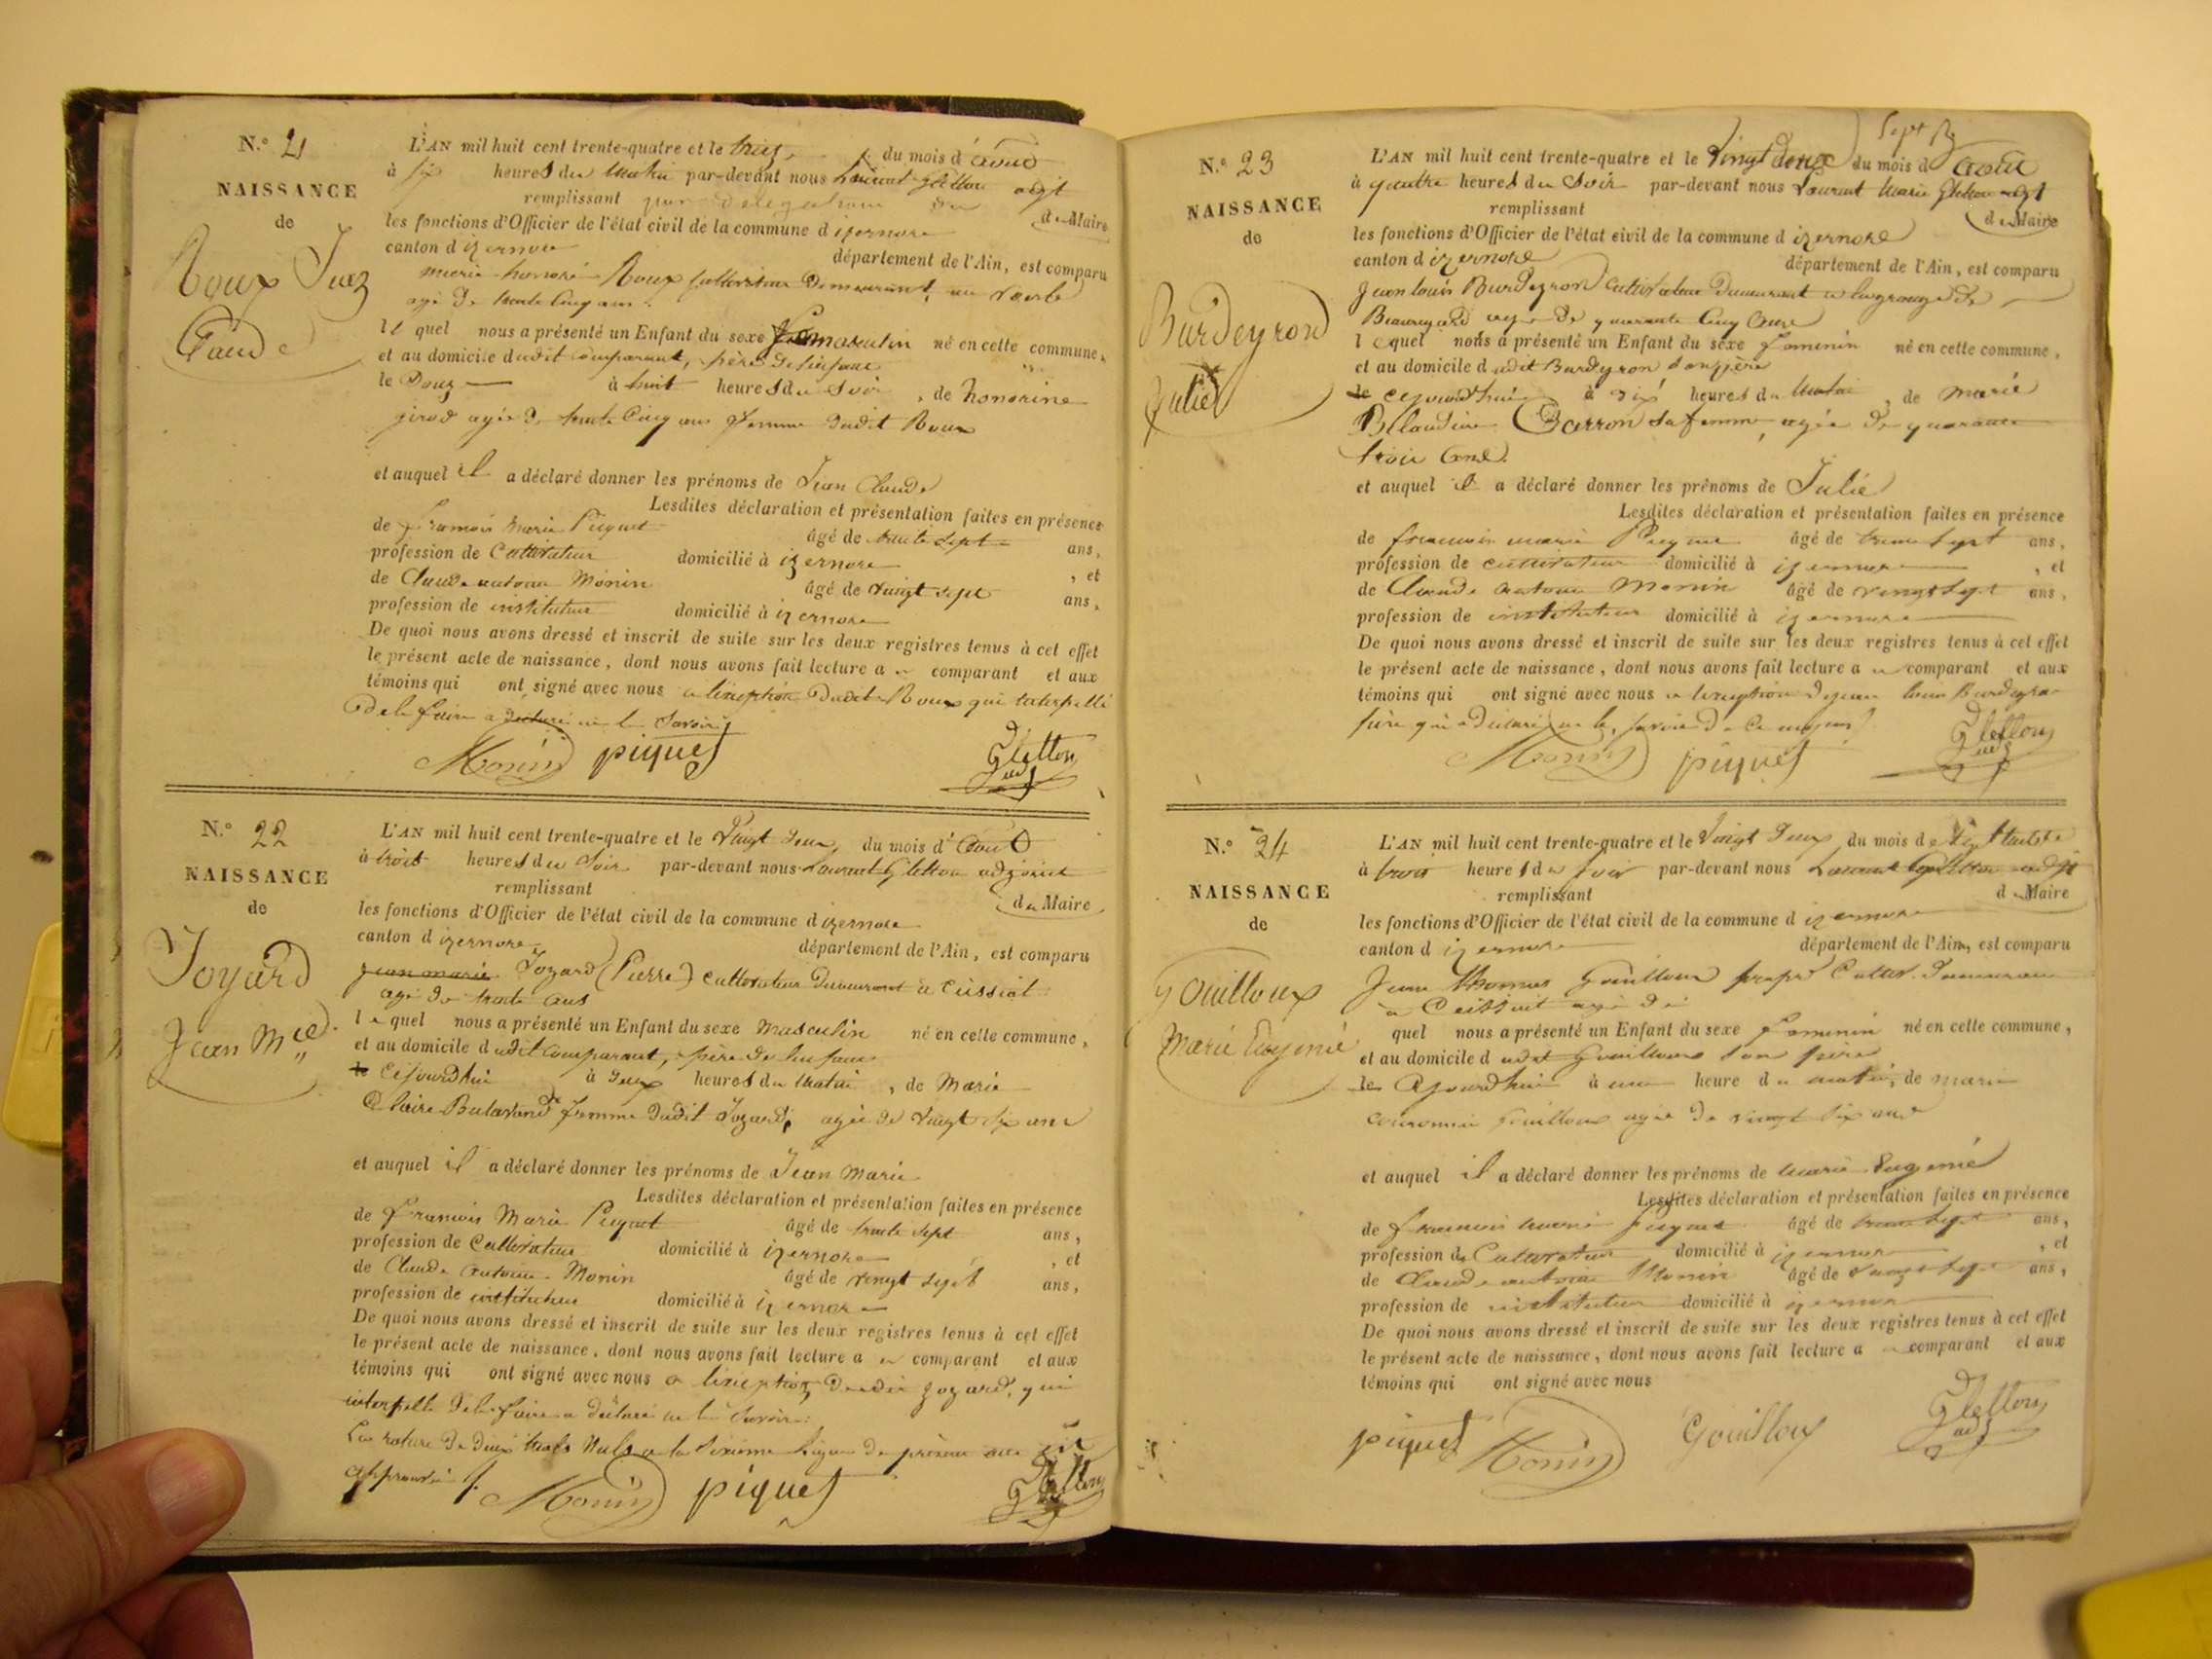 N.° 21
NAISSANCE
de
Roux Jean
Claude
L'AN mil huit cent trente-quatre et le treiz du mois d'août
à six heures du matin par-devant nous Laurent Gletton adjt
remplissant par délégation du
d Maire
les fonctions d'Officier de l'état civil de la commune d izernore
canton d izernore département de l'Ain, est comparu
marie honoré Roux cultivateur demeurant au
agé de trente cinq ans
l e quel nous a présenté un Enfant du sexe masculin né en cette commune,
et au domicile dudit comparant, père de l'enfant
le douz à huit heures du soir, de honorine
girod agée de trente cinq ans femme dudit Roux
et auquel il a déclaré donner les prénoms de Jean Claude
Lesdites déclaration et présentation faites en présence
de françois marie Piquet âgé de trente sept ans,
profession de Cultivateur domicilié à izernore, et
de Claude antoine Monin âgé de vingt sept ans,
profession de instituteur domicilié à izernore
De quoi nous avons dressé et inscrit de suite sur les deux registres tenus à cet effet
le présent acte de naissance, dont nous avons fait lecture a u comparant et aux
témoins qui ont signé avec nous a lexeption dudit Roux qui interpellé
de le faire a declaré ne le savoir
Monin piquet Gletton
adj
N.° 22
NAISSANCE
de
Joyard
Jean Mie
L'AN mil huit cent trente-quatre et le Vingt deux, du mois d'août
à trois heures du soir par-devant nous Laurent Gletton adjoint
remplissant
du Maire
les fonctions d'Officier de l'état civil de la commune d izernore
canton d izernore département de l'Ain, est comparu
jean marie Joyard (Pierre) cultivateur demeurant à Cussiat
agé de trente ans
l e quel nous a présenté un Enfant du sexe masculin né en cette commune,
et au domicile dudit comparant, père de l'enfant
le cejourdhui à deux heures du matin, de Marie
Claire Balavand femme dudit Joyard, agée de vingt six ans
et auquel il a déclaré donner les prénoms de Jean Marie
Lesdites déclaration et présentation faites en présence
de françois Marie Piquet âgé de trente sept ans,
profession de Cultivateur domicilié à izernore, et
de Claude antoine Monin âgé de vingt sept ans,
profession de instituteur domicilié à izernore
De quoi nous avons dressé et inscrit de suite sur les deux registres tenus à cet effet
le présent acte de naissance, dont nous avons fait lecture a u comparant et aux
témoins qui ont signé avec nous a lexeption dudit Joyard, qui
interpellé de le faire a déclaré ne le savoir
La rature de deux mots nuls a la sixième ligne du présent acte est
approuvée
Monin piquet Gletton
N.° 23
NAISSANCE
de
Burdeyron
Julie
Sept
L'AN mil huit cent trente-quatre et le Vingt deux du mois d août
à quatre heures du soir par-devant nous Laurent Marie Gletton adjt
remplissant
du Maire
les fonctions d'Officier de l'état civil de la commune d izernore
canton d izernore département de l'Ain, est comparu
Jean louis Burdeyron Cultivateur demeurant a la grange de
Beauregard agé de quarante cinq ans
l e quel nous a présenté un Enfant du sexe feminin né en cette commune,
et au domicile dudit Burdeyron son père
le cejourdhui à dix heures du matin, de marie
Claudine Carron sa femme, agée de quarante
trois ans.
et auquel il a déclaré donner les prénoms de Julie
Lesdites déclaration et présentation faites en présence
de francois marie Piquet âgé de trente sept ans,
profession de cultivateur domicilié à izernore, et
de Claude antoine Monin âgé de vingt sept ans,
profession de instituteur domicilié à izernore
De quoi nous avons dressé et inscrit de suite sur les deux registres tenus à cet effet
le présent acte de naissance, dont nous avons fait lecture a u comparant et aux
témoins qui ont signé avec nous a lexeption de jean louis Burdeyron
père qui a declaré ne le savoir de ce
Monin piquet Gletton
adj
N.° 24
NAISSANCE
de
Gouilloux
Marie Eugenie
L'AN mil huit cent trente-quatre et le Vingt deux du mois de septembre
à trois heures du soir par-devant nous Laurent Gletton adjt
remplissant
d Maire
les fonctions d'Officier de l'état civil de la commune d izernore
canton d izernore département de l'Ain, est comparu
Jean thomas Gouilloux propre Cultiv. demeurant
a Ceissiat agé de
quel nous a présenté un Enfant du sexe feminin né en cette commune,
et au domicile dudit Gouilloux son père
le cejourdhui à une heure du matin, de marie
Gouilloux agée de vingt six ans
et auquel il a déclaré donner les prénoms de Marie Eugenie
Lesdites déclaration et présentation faites en présence
de francois marie piquet âgé de trente sept ans,
profession de Cultivateur domicilié à izernore, et
de Claude antoine Monin âgé de vingt sept ans,
profession de instituteur domicilié à izernore
De quoi nous avons dressé et inscrit de suite sur les deux registres tenus à cet effet
le présent acte de naissance, dont nous avons fait lecture a u comparant et aux
témoins qui ont signé avec nous
piquet Monin Gouilloux Gletton
adj